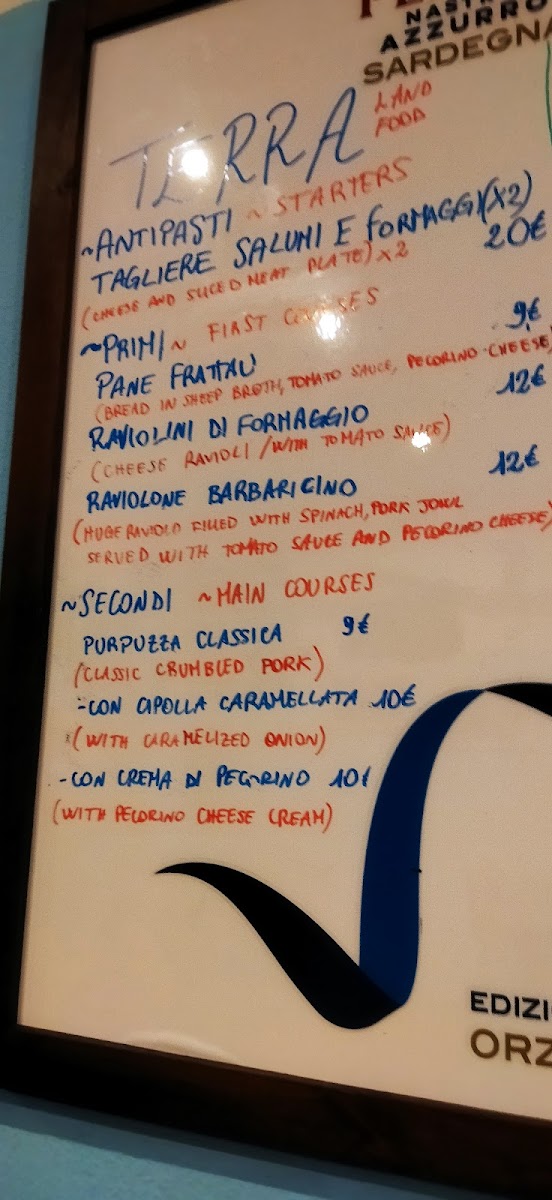 NAST
AZZURRO
SARDEGNA
TERRA LAND
FOOD
~ANTIPASTI ~STARTERS
TAGLIERE SALUMI E FORMAGGI(X2)
20€
(CHEESE AND SLICED MEAT PLATE) X2
~PRIMI~ FIRST COURSES
PANE FRATTAU 9€
(BREAD IN SHEEP BROTH, TOMATO SAUCE, PECORINO-CHEESE)
RAVIOLINI DI FORMAGGIO 12€
(CHEESE RAVIOLI/WITH TOMATO SAUCE)
RAVIOLONE BARBARICINO 12€
(HUGE RAVIOLO FILLED WITH SPINACH, PORK JOWL
SERVED WITH TOMATO SAUCE AND PECORINO CHEESE)
~SECONDI ~MAIN COURSES
PURPUZZA CLASSICA 9€
(CLASSIC CRUMBLED PORK)
-CON CIPOLLA CARAMELLATA 10€
(WITH CARAMELIZED ONION)
-CON CREMA DI PECORINO 10€
(WITH PECORINO CHEESE CREAM)
EDIZI
ORZ